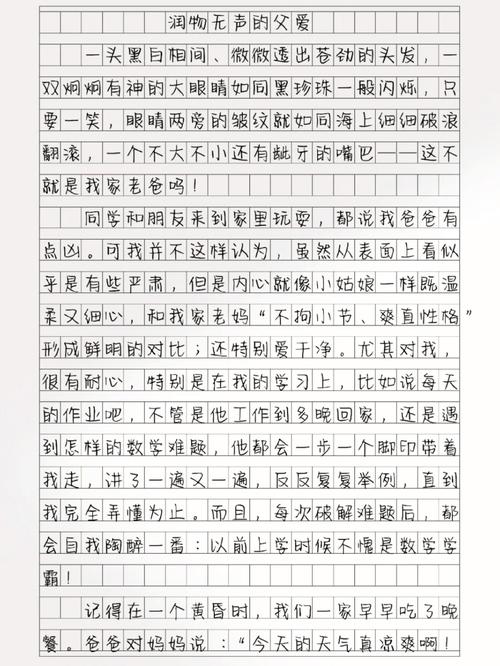 润物无声的父爱
一头黑白相间、微微透出苍劲的头发，一
双炯炯有神的大眼睛如同黑珍珠一般闪烁，只
要一笑，眼睛两旁的皱纹就如同海上细细破浪
翻滚，一个不大不小还有龇牙的嘴巴——这不
就是我家老爸吗！
同学和朋友来到家里玩耍，都说我爸爸有
点凶。可我并不这样认为，虽然从表面上看似
乎是有些严肃，但是内心就像小姑娘一样既温
柔又细心，和我家老妈“不拘小节、爽直性格”
形成鲜明的对比；还特别爱干净。尤其对我，
很有耐心，特别是在我的学习上，比如说每天
的作业吧，不管是他工作到多晚回家，还是遇
到怎样的数学难题，他都会一步一个脚印带着
我走，讲了一遍又一遍，反反复复举例，直到
我完全弄懂为止。而且，每次破解难题后，都
会自我陶醉一番：以前上学时候不愧是数学学
霸！
记得在一个黄昏时，我们一家早早吃了晚
餐。爸爸对妈妈说：“今天的天气真凉爽啊！